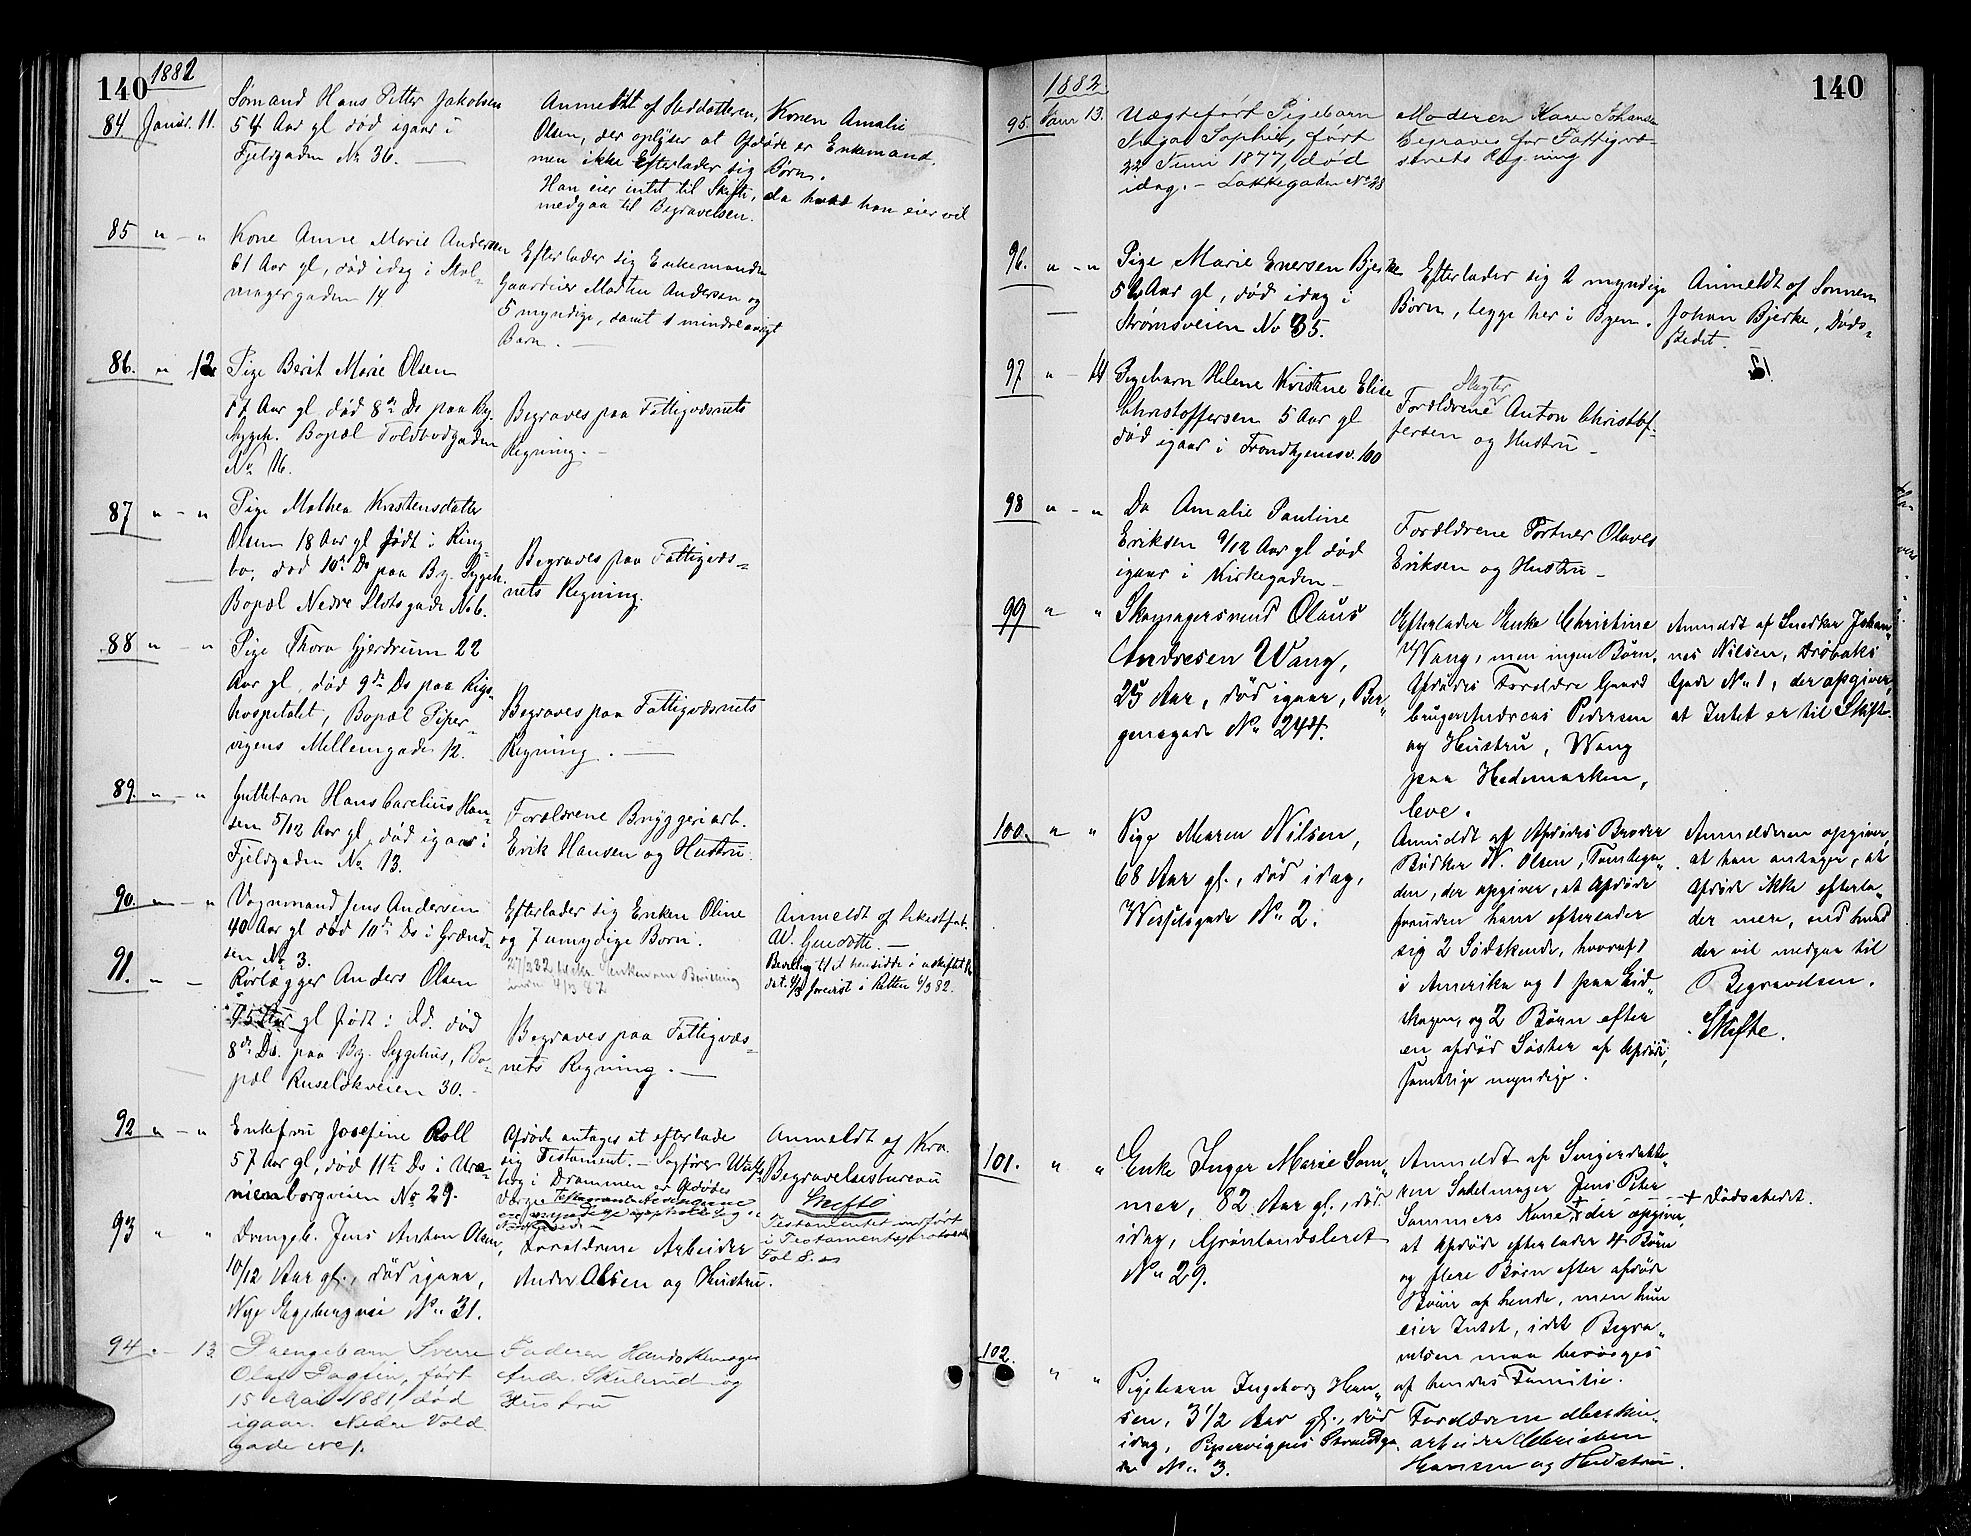 140
1882
84 Januar. 11.
Sømand Hans Petter Jakobsen
54 Aar gl død igaar i
Fjeldgaden No 36. —
Anmeldt af Steddatteren,
Olsen, der oplyser at Afdøde er Enkemand.
men ikke Efterlader sig Børn.
Han eier intet til Skifte, da hvad han eier vil
medgaa til Begravelsen.
Konen Amalie
85 " - "
Kone Anne Marie Andersen
61 Aar gl, død idag i Stol-
magergaden 14
Efterlader sig Enkemanden
Gaardeier Andersen og
5 myndige, samt 1 mindreaarigt
Barn. —
86. " 12
Pige Berit Marie Olsen
Aar gl, død 8de Ds paa By.
Sygeh. Bopæl Toldbodgaden
No 16.
Begraves paa Fattigvæsnets
Regning. —
87 " - "
Pige Mathea Kristensdatter
Olsen 18 Aar gl født i Ring-
bo, død 10de Ds paa By. Sygeh.
Bopæl Nedre Slotsgade No 6.
Begraves paa Fattigvæs-
nets Regning.
88 " - "
Pige Thora Gjerdrum 22
Aar gl, død 9de Ds paa Rigs-
hospitalet, Bopæl Piper-
vigens Mellemgade 12.
Begraves paa Fattigvæsnets
Regning. —
89. " - "
Guttebarn Hans Carelius Han-
sen 5/12 Aar gl, død igaar i
Fjeldgaden No 13.
Forældrene Bryggeriarb.
Erik Hansen og Hustru.
90. " - "
Vognmand Jens Andersen
40 Aar gl død 10de Ds i Grænd-
sen No 3.
Efterlader sig Enken Oline
og 7 umyndige Børn.
Anmeldt af
W. —
Bevilling til at hensidde i uskiftet Bo
dat. forevist i Retten 6/3 82.
91. " -
Rørlægger Anders Olsen
45 Aar gl født i død
8de Ds. paa By. Sygehus, Bo-
pæl Ruseløkveien 30.
Begraves paa Fattigvæs-
nets Regning. —
92 " - "
Enkefru Josefine Roll
57 Aar gl, død 11te Ds i Ura-
nienborgveien No 29.
Afdøde antages at efterlade
sig Testament. — Sagfører
i Drammen er Afdødes
Anmeldt af Kra.
Begravelsesbureau
Skifte
Testamentet indført
i Testamentsprotocol
Fol 8.
93 " "
Drengeb. Jens Anton Olsen,
10/12 Aar gl., død igaar,
Nye Egebergvei No 31.
Forældrene Arbeider
Anders Olsen og Hustru.
94. - 13.
Drengebarn Sverre
Olaf Dagfin, født
15 Mai 1881, død
igaar. Nedre Vold
gade No 1.
Faderen Handskemager
Andr. Skulerud og
Hustru
140
1882
95. Janr 13.
Uægtefødt Pigebarn
Inga Sophie, født
22 Juni 1877, død
idag. — Lakkegaden No 28
Moderen Karen Johansen
Begraves for Fattigvæ-
senets Regning
96. " - "
Pige Marie Enersen Bjerke
52 Aar gl, død idag i
Strømsveien No 35.
Efterlader sig 2 myndige
Børn, begge her i Byen.
Anmeldt af Sønnen
Johan Bjerke, Døds-
stedet.
97 " - 14
Pigebarn Helene Kristine Elise
Christoffersen 5 Aar gl
død igaar i Trondhjemsv. 100
Slagter
Forældrene Anton Christof-
fersen og Hustru —
98 " - "
Do Amalie Pauline
Eriksen 9/12 Aar gl død
igaar i Kirkegaden —
Forældrene Portner Olaves
Eriksen og Hustru —
99 " "
Skomagersvend Olaus
Andresen Wang,
25 Aar, død igaar, Ber-
gensgade No 244.
Efterlader Enke Christine
Wang, men ingen Børn.
Afdødes Forældre Gaard
bruger Andreas Pedersen
og Hustru, Wang
paa Hedemarken,
leve.
Anmeldt af Snedker Johan-
nes Nilsen, Drøbaks
Gade No 1, der opgiver,
at Intet er til Skifte.
100. " "
Pige Maren Nilsen,
68 Aar gl., død idag,
Wesselsgade No 2.
Anmeldt af Afdødes Broder
Bødker N. Olsen, Tomtega-
den, der opgiver, at Afdøde
foruden ham efterlader
sig 2 Sødskende, hvoraf 1
i Amerika og 1 paa Eid-
skogen, og 2 Børn efter
en afdød Søster af Afdøde,
samtlige myndige.
Anmelderen opgiver,
at han antager, at
Afdøde ikke efterla-
der mere, end hvad
der vil medgaa til
Begravelsen.
Skifte.
101. " "
Enke Inger Marie Som-
mer, 82 Aar gl., død
idag, Grønlandsleret
No 29.
Anmeldt af Svigerdatte-
ren Sadelmager Jens Peter
Sommers Kone, + der opgiver,
at Afdøde efterlader 4 Børn
og flere Børn efter afdøde
Børn af hende, men hun
eier Intet, idet Begra-
velsen maa besørges
af hendes Familie.
+ Dødsstedet.
102. " "
Pigebarn Ingeborg Han-
sen, 3 1/2 Aar gl., død
idag, Pipervigens Strandga-
de No 3.
Forældrene Maskin-
arbeider Christen
Hansen og Hustru.